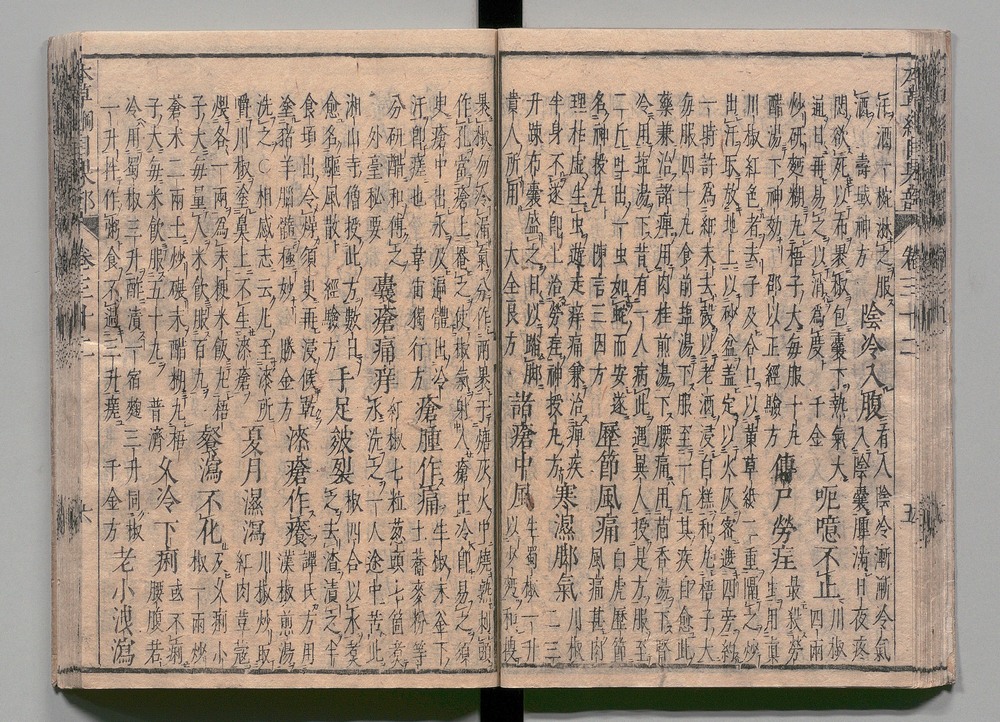 汪酒十椀淋之服 陰冷入腹 有人陰冷漸漸冷氣入陰囊腫滿日夜疼
悶欲死以布裹椒包囊下熱氣大
通日再易之以消為度 千金 呃噫不止 川椒四兩
炒研麪糊丸梧子大每服十丸
醋湯下神効 邵以正經驗方 傳尸勞疰 最殺勞蟲用真
川椒紅色者去子及合口以黄草紙二重隔之炒
出汗取放地上以砂盆蓋定以火灰密遮四旁約
一時許為細末去殼以老酒浸白糕和丸梧子大
每服四十丸食前鹽湯下服至一斤其疾自愈此
藥兼治諸痺用肉桂煎湯下腰痛用茴香湯下腎
冷用鹽湯下昔有一人病此遇異人授是方服至
二斤吐出一虫如蛇而安遂
名神授丸 陳言三因方 歷節風痛 白虎歷節風痛甚肉
理枯虚生虫遊走痒痛兼治痺疾
半身不遂即上治勞疰神授丸方 寒濕脚氣 川椒二三
升踈布囊盛之日以踏脚
貴人所用 大全良方 諸瘡中風 生蜀椒一升以少麪和溲
裹椒勿令漏氣分作兩裹于煻灰火中燒熟刺頭
作孔當瘡上罨之使椒氣射入瘡中冷即易之須
臾瘡中出水及遍體出冷
汗即瘥也 韋宙獨行方 瘡腫作痛 生椒末釜下土蕎麥粉等
分研醋和傅之
外臺秘要 囊瘡痛痒 川椒七粒葱頭七箇煑
水洗之一人途中苦此
湘山寺僧授此方數日
愈名驅風散 經驗方 手足皴裂 椒四合以水煑
之去渣漬之半
食頃出令燥須臾再浸候乾
塗猪羊腦髓極妙 勝金方 漆瘡作癢 譚氏方用漢椒煎湯
洗之○相感志云凡至漆所
嚼川椒塗鼻上不生漆瘡 夏月濕瀉 川椒炒取紅肉荳蔻
煨各一兩為末粳米飯丸梧
子大毎量人米飲服百丸 飱瀉不化 及久痢小椒一兩炒
蒼朮二兩土炒碾末醋糊丸梧
子大毎米飲服五十丸 普濟 久冷下痢 或不痢腰腹若
冷用蜀椒三升酢漬一宿麴三升同椒
一升拌作粥食不過三升瘥 千金方 老小洩瀉